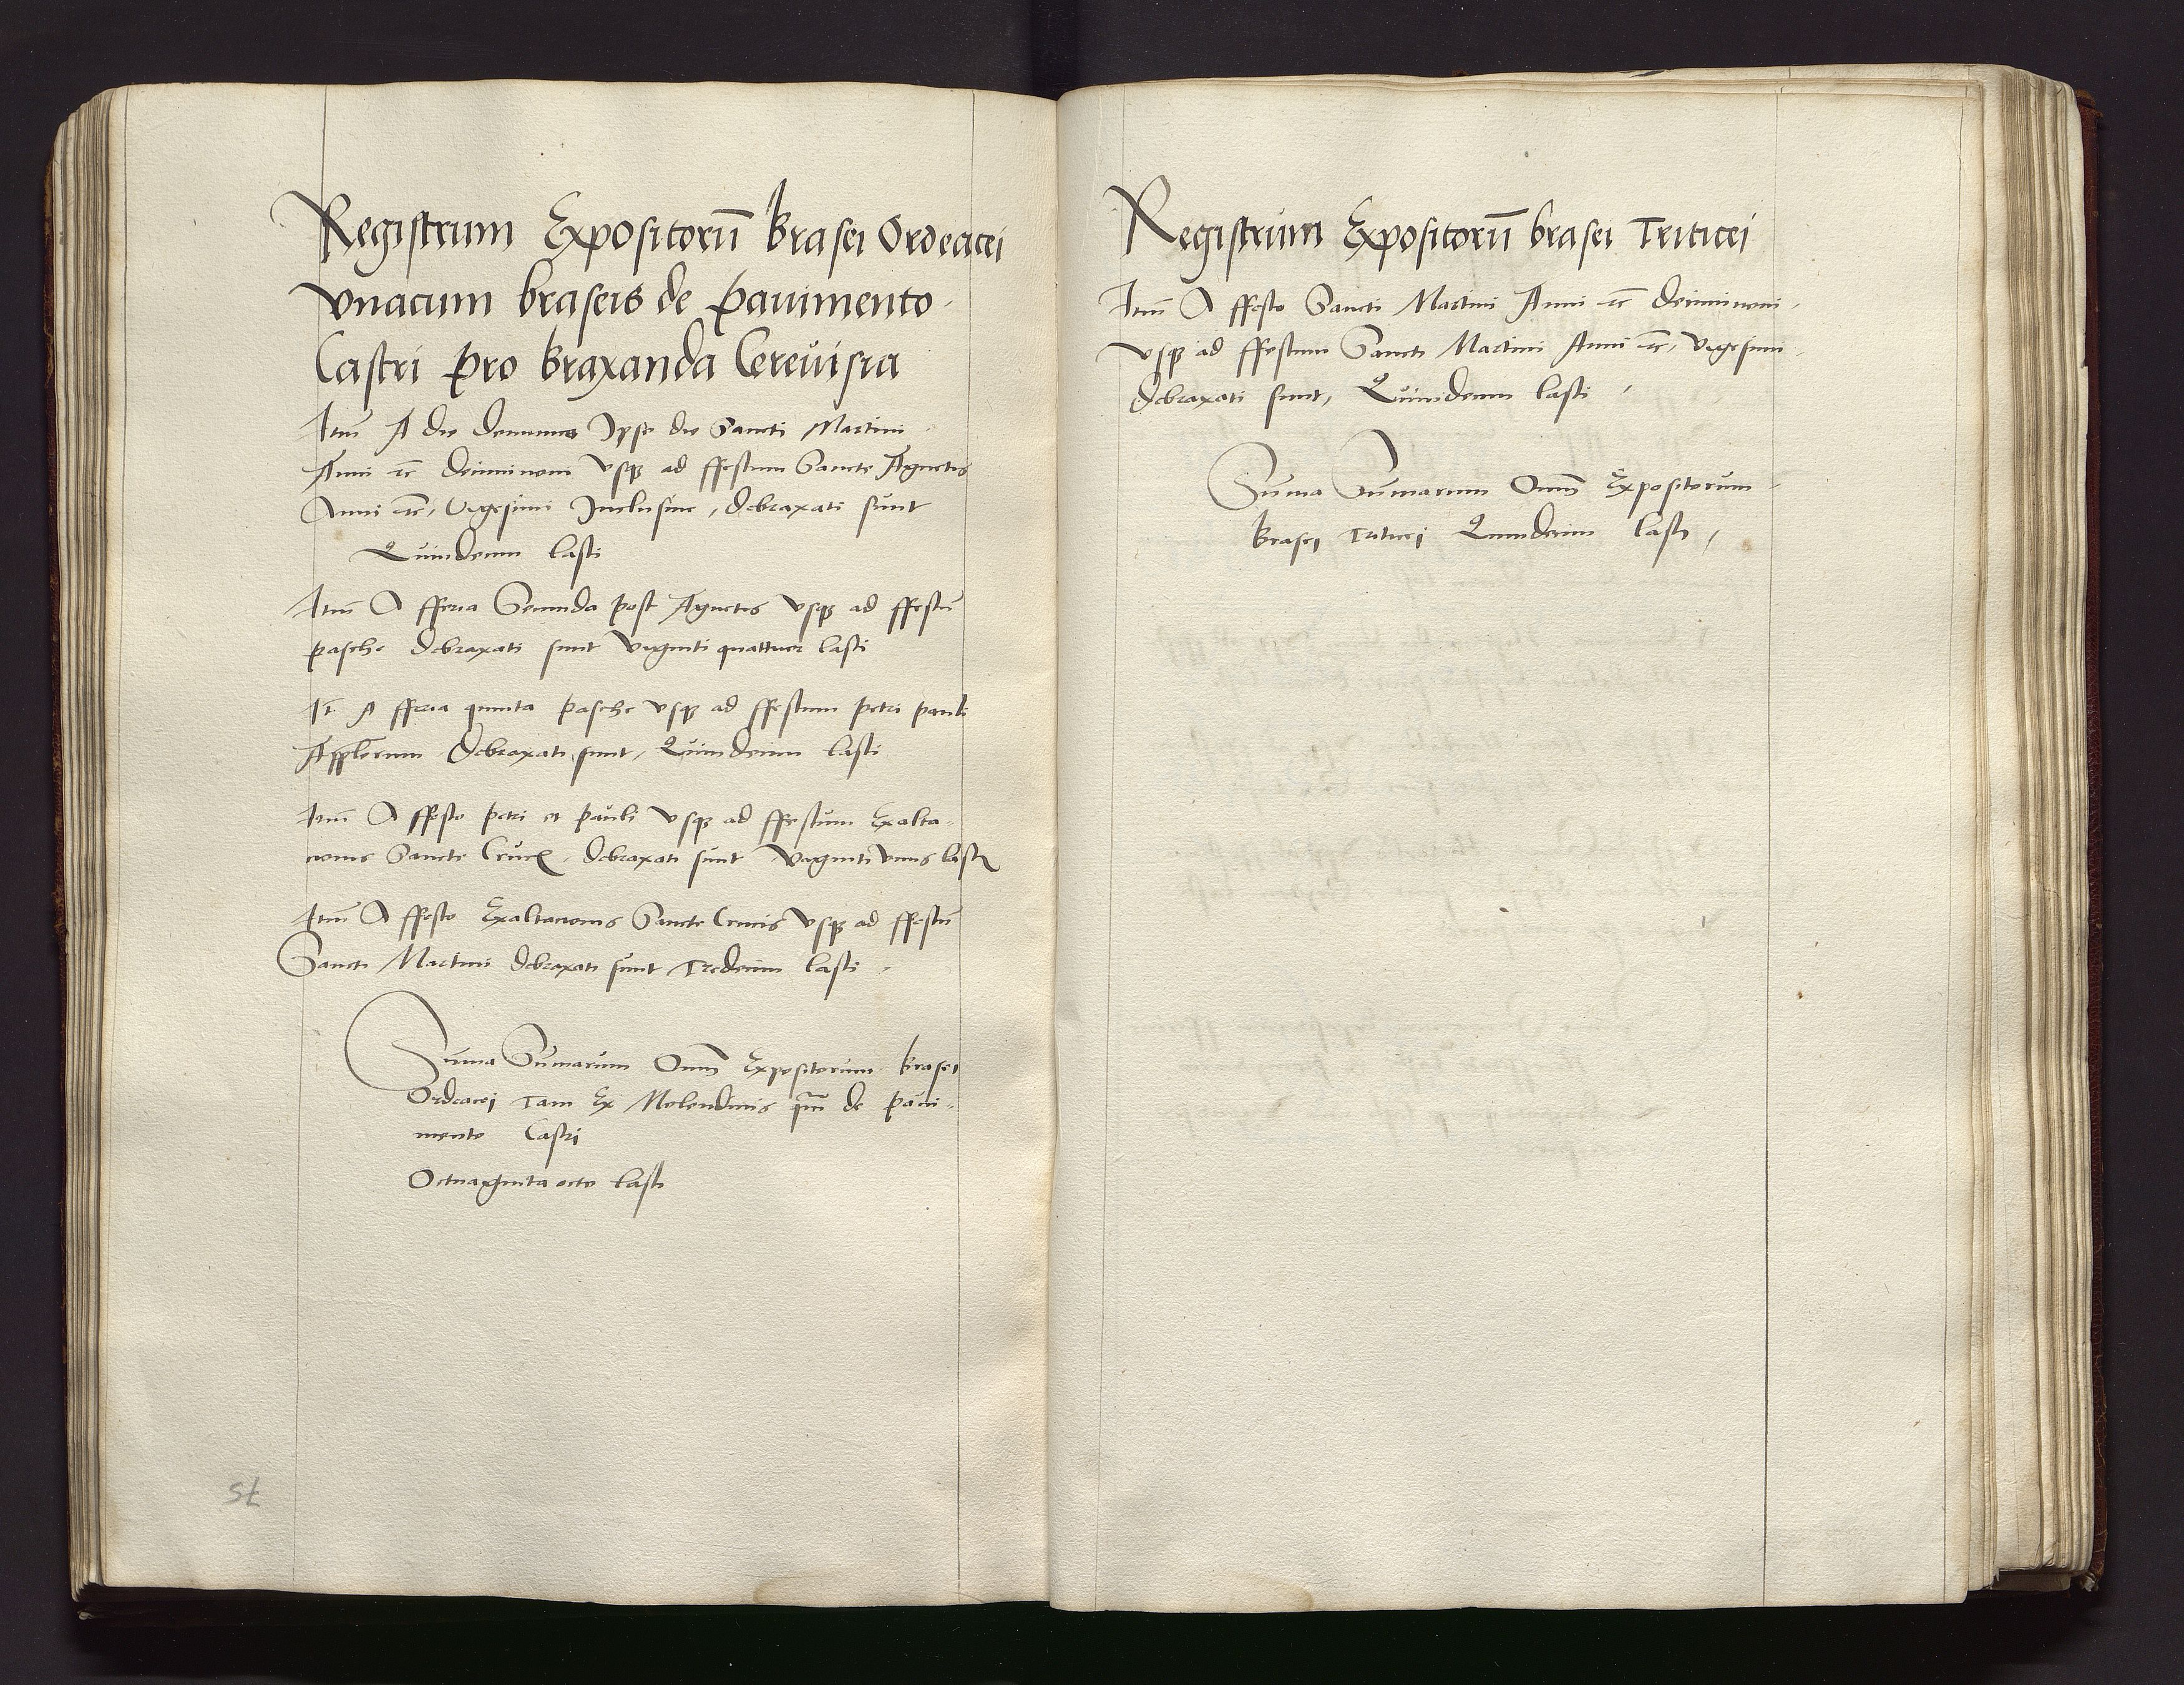 Registrum Expositorū brasei Ordeacei
vnacum braseis de pauimento
Castri pro braxanda Cereuisia
Itm̄ A die Ipso die Sancti Martini
Anni ꝛc̄ deciminoni vsqꝫ ad ffestum Sancte Agnetis
Anni ꝛc̄, vigesimi Inclusiue, debraxati sunt
Quindecim lasti
Itm̄ A fferia Secunda post Agnetis vsqꝫ ad ffestū
pasche debraxati sunt viginti quattuor lasti
It̄ A fferia quinta pasche vsqꝫ ad ffestum petri pauli
Aplorum debraxati sunt, Quindecim lasti
Itm̄ A ffesto petri et pauli vsqꝫ ad ffestum Exalta-
cionis Sancte Crucꝭ, debraxati sunt viginti vnus lasti
Itm̄ A ffesto Exaltacionis Sancte Crucis vsqꝫ ad ffestū
Sancti Martini debraxati sunt Tredecim lasti
Suma Sumarum Omm̄ Expositorum brasei
Ordeacei Tam Ex Molendinis qm̄ de paui-
mento Castri
Octuaginta octo lasti
75
Registrum Expositorū brasei Triticei
Itm̄ A ffesto Sancti Martini Anni ꝛc̄ deciminoni
vsqꝫ ad ffestum Sancti Martini Anni ꝛc̄, vigesimi
debraxati sunt, Quindecim lasti
Suma Sumarum Omm̄ Expositorum
brasei Triticei Quindecim lasti